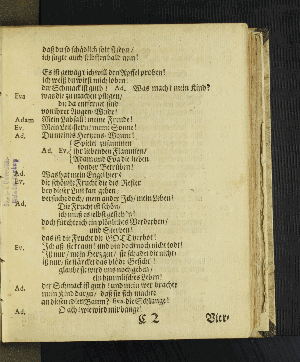 daß du so schädlich solt sterben/
ich sagte auch selbsten bald nein!
Es ist gewagt ich will den Apffel proben!
ich weiß du wirst mich loben.
der Schmack ist guth! Ad. Was macht mein Kind?
Eva was dir zu machen pflegen/
die da entfernt sind
von ihrer Augen-Weide!
Adam Mein Labsal! meine Freude!
Ev. Mein Leitstern/ meine Sonne!
Ad. Du meines Hertzens-Wonne!
Spielet zusammen
Ad. Ev. ihr liebenden Flammen/
Adam und Eva die lieben
sonder Betrüben!
Ad. Was hat mein Engel hier?
Ev. die schönste Frucht die diß
bey dieser Lust kan geben.
versuche doch/ mein ander Ich/ mein Leben!
Ad. Die Frucht ist schön/
ich muß es selbst gesteh'n!
doch fürcht ich ein plötzliches Verderben/
und Sterben!
das ist die Frucht die GOTT verboth!
Ev. Ich aß sie kaum! und bin doch noch nicht todt!
Iß nur/ mein Hertzgen! sie schadet dir nicht;
iß nur/ sie stärcket das blöde Gesicht!
glaube sie wird uns noch geben/
ein himmlisches Leben!
Ad. der Schmack ist guth! und mein wer brachte
mein Kind darzu/ daß sie sich machte
an diesen edlen Baum? Ev. die Schlange!
Ad. O ach! wie wird mir bange!
C 2 Vier-